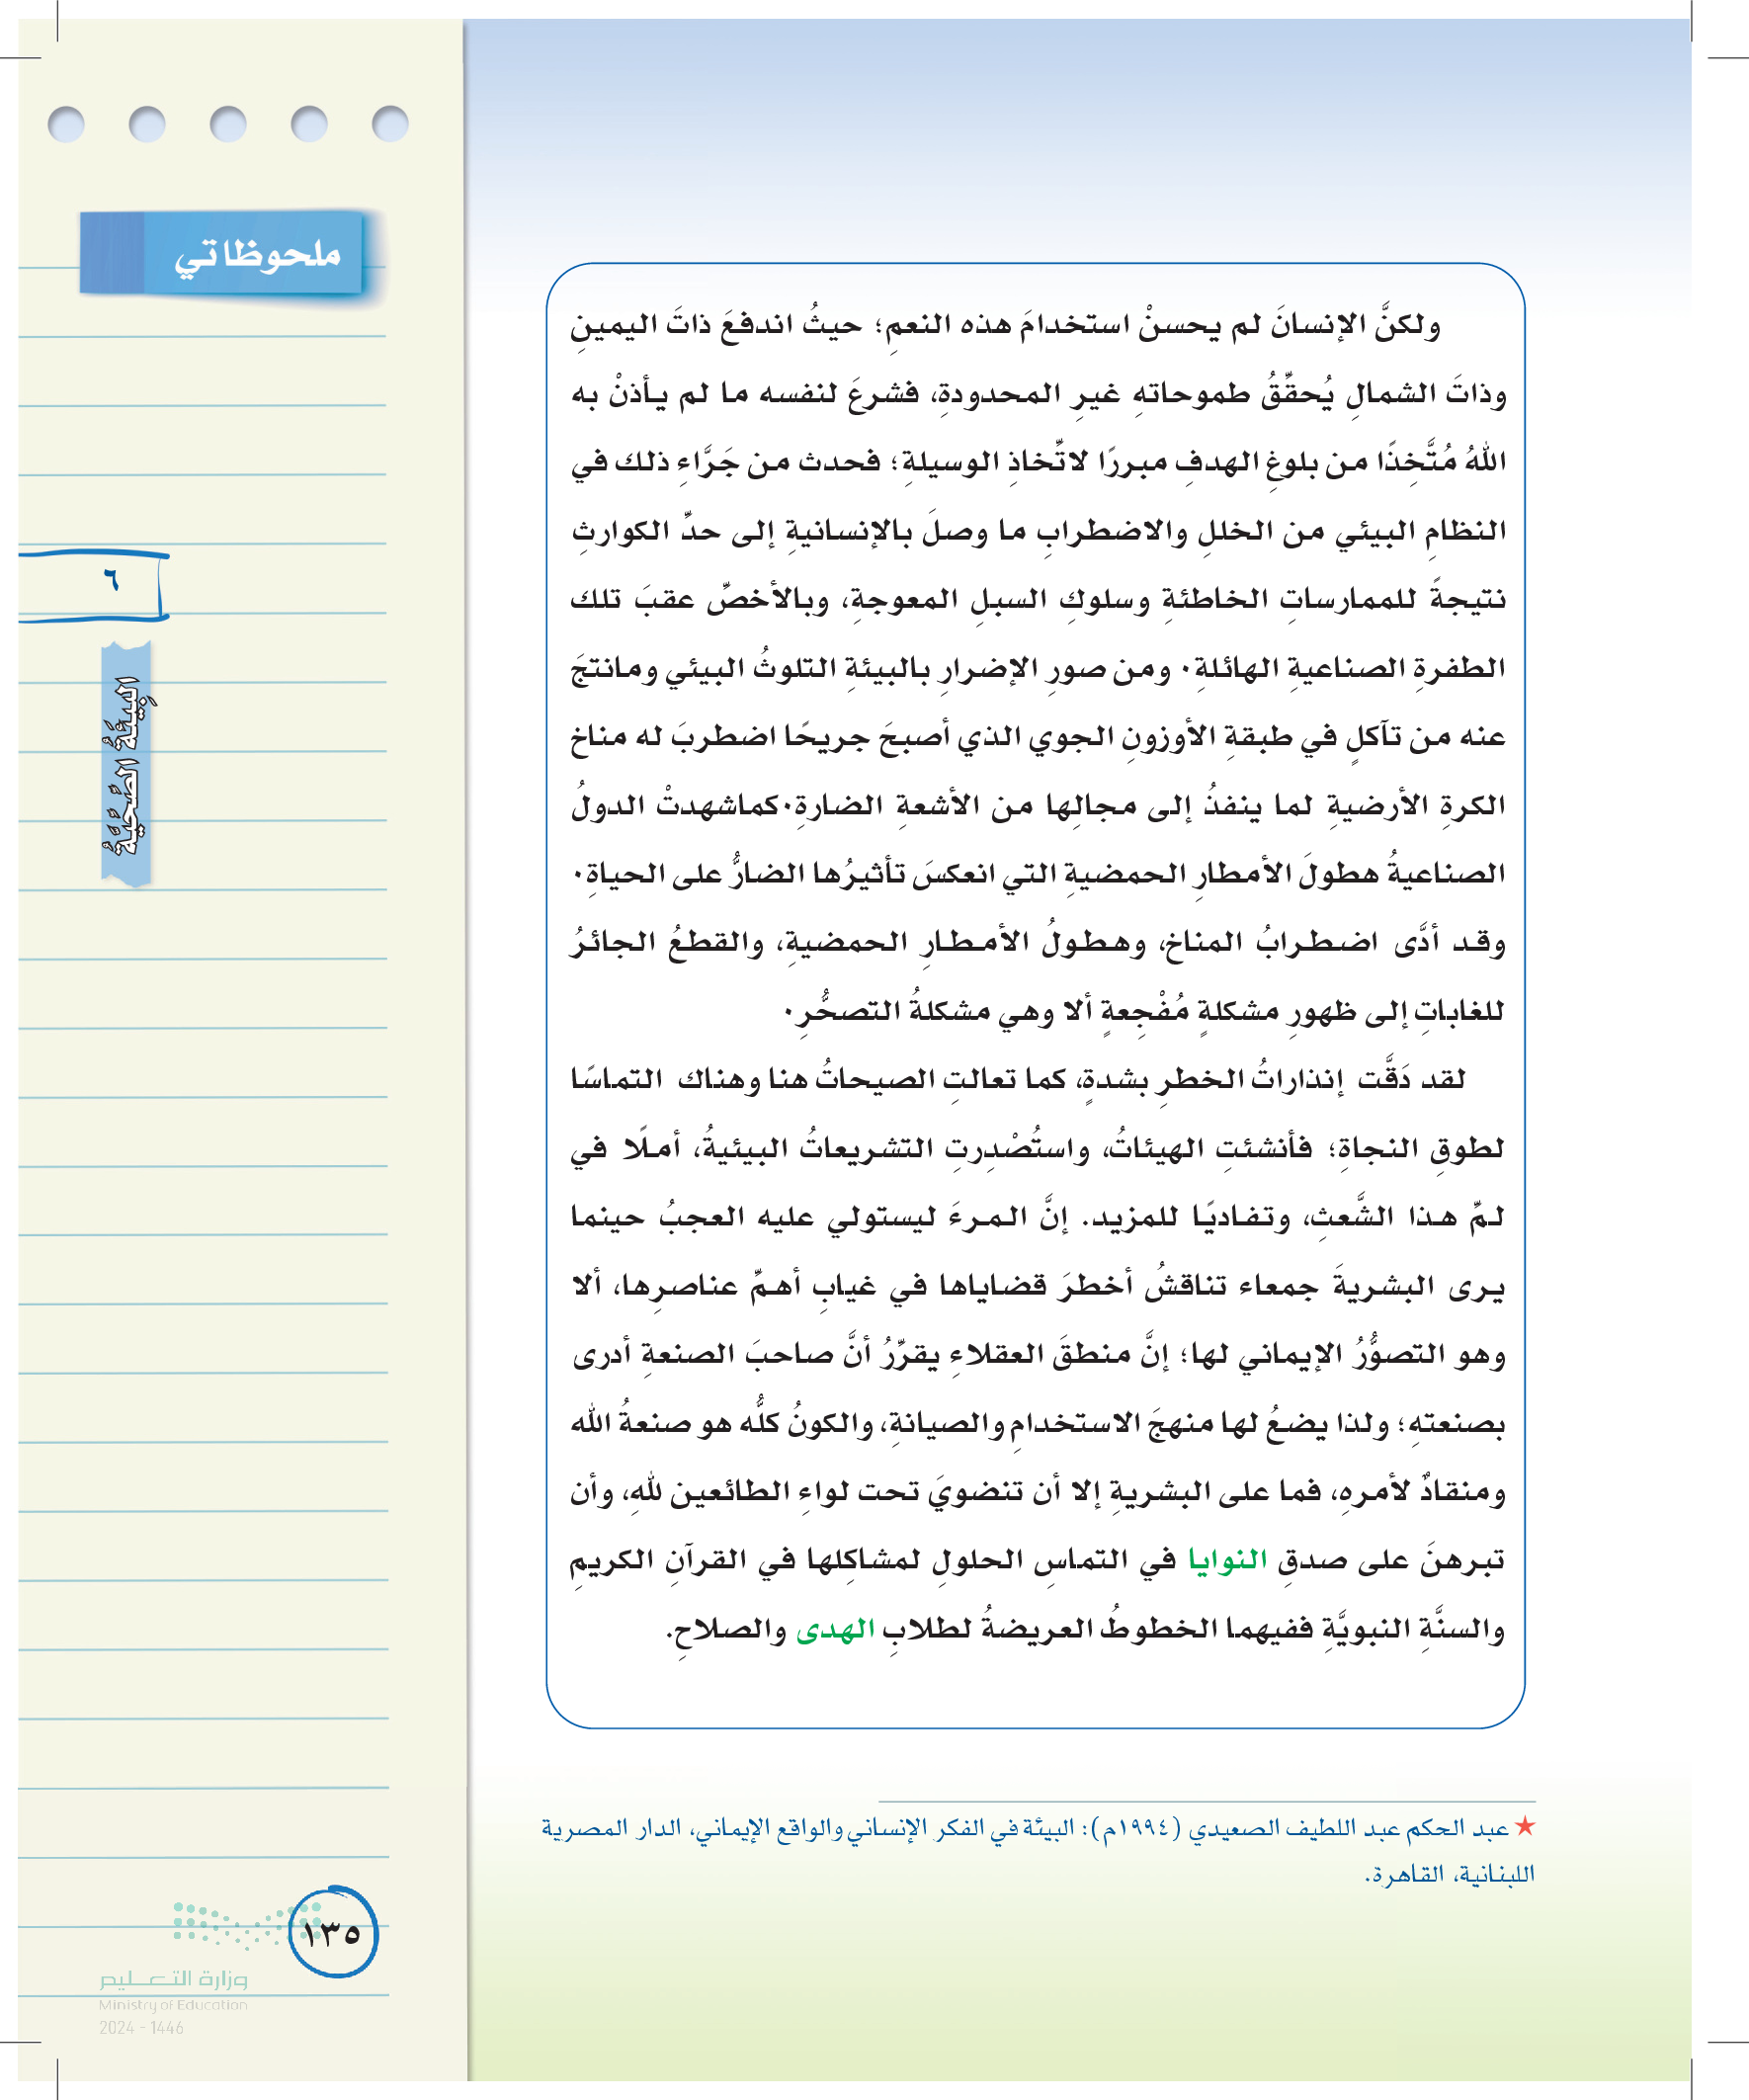 ملحوظاتي
ولكنَّ الإنسانَ لم يحسنْ استخدامَ هذه النعمِ؛ حيثُ اندفعَ ذاتَ اليمينِ
وذاتَ الشمالِ يُحقِّقُ طموحاتهِ غيرِ المحدودةِ، فشرعَ لنفسه ما لم يأذنْ به
اللهُ مُتَّخِذًا من بلوغِ الهدفِ مبررًا لاتِّخاذِ الوسيلةِ؛ فحدث من جَرَّاءِ ذلك في
النظامِ البيئي من الخللِ والاضطرابِ ما وصلَ بالإنسانيةِ إلى حدِّ الكوارثِ
نتيجةً للممارساتِ الخاطئةِ وسلوكِ السبلِ المعوجةِ، وبالأخصِّ عقبَ تلك
الطفرةِ الصناعيةِ الهائلةِ. ومن صورِ الإضرارِ بالبيئةِ التلوثُ البيئي ومانتجَ
عنه من تآكلٍ في طبقةِ الأوزونِ الجوي الذي أصبحَ جريحًا اضطربَ له مناخ
الكرةِ الأرضيةِ لما ينفذُ إلى مجالِها من الأشعةِ الضارةِ.كماشهدتْ الدولُ
الصناعيةُ هطولَ الأمطارِ الحمضيةِ التي انعكسَ تأثيرُها الضارُّ على الحياةِ.
وقد أدَّى اضطرابُ المناخ، وهطولُ الأمطارِ الحمضيةِ، والقطعُ الجائرُ
للغاباتِ إلى ظهورِ مشكلةٍ مُفْجِعةٍ ألا وهي مشكلةُ التصحُّرِ.
لقد دَقَّت إنذاراتُ الخطرِ بشدةٍ، كما تعالتِ الصيحاتُ هنا وهناك التماسًا
لطوقِ النجاةِ؛ فأنشئتِ الهيئاتُ، واستُصْدِرتِ التشريعاتُ البيئيةُ، أملًا في
لمِّ هذا الشَّعثِ، وتفاديًا للمزيد. إنَّ المرءَ ليستولي عليه العجبُ حينما
يرى البشريةَ جمعاء تناقشُ أخطرَ قضاياها في غيابِ أهمِّ عناصرِها، ألا
وهو التصوُّرُ الإيماني لها؛ إنَّ منطقَ العقلاءِ يقرِّرُ أنَّ صاحبَ الصنعةِ أدرى
بصنعتهِ؛ ولذا يضعُ لها منهجَ الاستخدامِ والصيانةِ، والكونُ كلُّه هو صنعةُ الله
ومنقادٌ لأمرهِ، فما على البشريةِ إلا أن تنضويَ تحت لواءِ الطائعين للهِ، وأن
تبرهنَ على صدقِ النوايا في التماسِ الحلولِ لمشاكِلها في القرآنِ الكريمِ
والسنَّةِ النبويَّةِ ففيهما الخطوطُ العريضةُ لطلابِ الهدى والصلاحِ.
٦
البِيئَةُ الصِّحِّيَّةُ
★ عبد الحكم عبد اللطيف الصعيدي (١٩٩٤م): البيئة في الفكر الإنساني والواقع الإيماني، الدار المصرية
اللبنانية، القاهرة.
١٣٥
وزارة التعليم
Ministry of Education
2024 - 1446